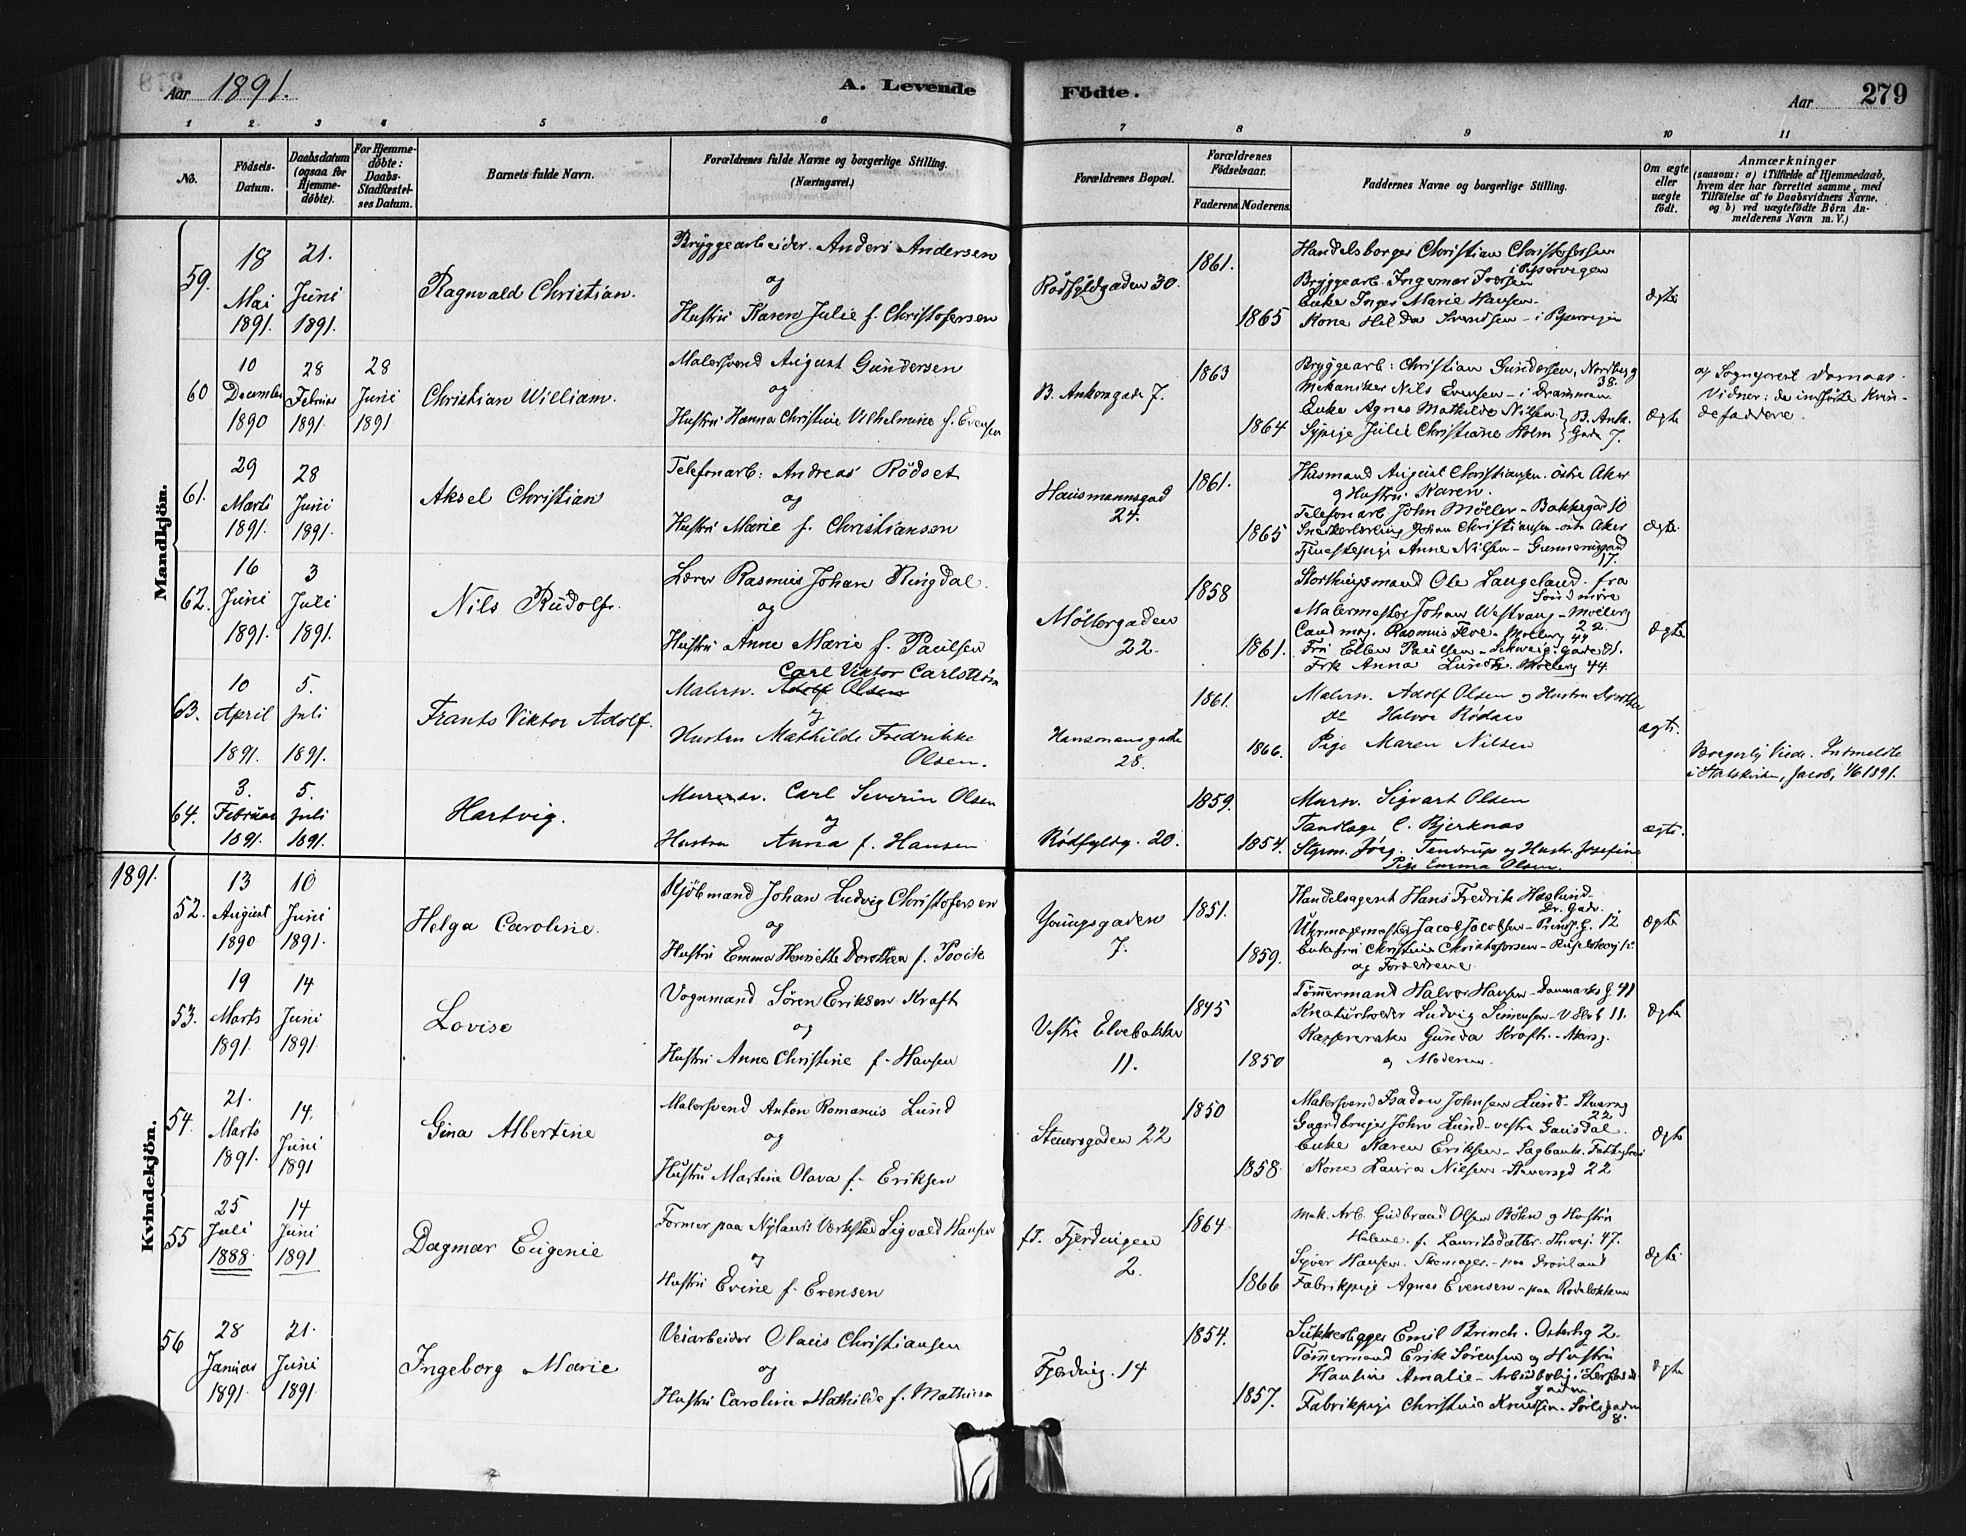 Aar 1891.
A. Levende
Födte.
Aar
279
1
2
3
4
5
6
7
8
9
10
11
No.
Födsels-
Datum.
Daabsdatum
(ogsaa for
Hjemme-
döbte).
For Hjemme-
döbte:
Daabs-
Stadfæstel-
ses Datum.
Barnets fulde Navn.
Forældrenes fulde Navne og borgerlige Stilling.
(Næringsvei.)
Forældrenes Bopæl.
Forældrenes
Födselsaar.
Faderens.
Moderens.
Faddernes Navne og borgerlige Stilling.
Om ægte
eller
uægte
födt.
Anmærkninger
(saasom: a) i Tilfælde af Hjemmedaab,
hvem der har forrettet samme, med
Tilföielse af to Daabsvidners Navne,
og b) ved uægtefödte Börn An-
melderens Navn m. V.)
Mandkjön.
59.
18
Mai
1891.
21.
Juni
1891.
Ragnvald Christian.
Bryggearbeider Anders Andersen
og
Hustru Karen Julie f. Christofersen
Rødfyldgaden 30.
1861.
1865
Handelsborger Christian Christofersen
Bryggearb. Ingemar Iversen
Enke Inger Marie Hansen
Kone Hilda Svendsen
ægte
60
10
December
1890
28
Februar
1891.
28
Juni
1891
Christian William.
Malersvend August Gundersen
og
Hustru Hanna Christine Vilhelmine f. Evensen
B. Ankersgade 7.
1863
1864
Bryggearb: Christian Gundersen, Nordbyg
38.
Mekaniker Nils Evensen - i Drammen
Enke Agnes Mathilde Nilsen
Sypige Julie Christiane Holm
B. Ank.
Gade 7.
ægte
af Sogneprest
Vidner: de innførte Kvin-
defaddere.
61.
29
Marts
1891.
28
Juni
1891.
Aksel Christian
Telefonarb: Andreas Rödset
og
Hustru Marie f. Christiansen
Hausmannsgad
24.
1861.
1865
Husmand August Christiansen. østre Aker
og Hustru Karen.
Telefonarb John Möller - Bakkegad 10
Snedkerlærling Johan Christiansen - østre Aker
Tjenestepige Anne Nilsen - Grunnerigad
17.
ægte
62.
16
Juni
1891.
3
Juli
1891.
Nils Rudolf.
Lærer Rasmus Johan Ringdal
og
Hustru Anna Marie f. Paulsen
Møllergaden
22.
1858
1861.
Storthingsmand Ole Langeland. fra
Søndmøre
Malermester Johan Westvang - Möllerg
22.
Cand mag. Rasmus Floe - Mollerg 44
Fru Ellen Paulsen - Schweigsgade 81.
Frk Anna Lund Mollerg 44.
ægte
63.
10
April
1891.
5.
Juli
1891.
Frants Viktor Adolf.
Carl Viktor Carlström
Malersv. Adolf Olsen
og
Hustru Mathilde Fredrikke
Olsen.
Hausmansgade
28.
1861.
1866.
Malersv. Adolf Olsen og Hustru Dorthea
do Halvor Rødaas
Pige Maren Nilsen
ægte.
Borgerlig Viede. Indmeldte
i Statskirken, Jacob, 1/6 1891.
64.
3.
Februar
1891.
5.
Juli
1891.
Hartvig.
Murersv. Carl Severin Olsen
og
Hustru Anna f. Hansen
Rødfyldg. 20.
1859.
1854.
Mursv. Sigvart Olsen
Tandlæge C. Bjerknæs
Styrm. Jørg. Tendrup og Hustr. Josefine
Pige Emma Olsen.
ægte.
1891.
Kvindekjön.
52.
13
August
1890
10
Juni
1891.
Helga Caroline.
Kjöbmand Johan Ludvig Christofersen
og
Hustru Emma Henriette Dorothea f.
Youngsgaden
7.
1851.
1859.
Handelsagent Hans Fredrik Haslund
Dr. Gade.
Uhrmagermester Jacob Jacobsen - Prinds. G. 12
Enkefru Christine Christofersen
og Forældrene
ægte
53.
19
Marts
1891.
14
Juni
1891
Lovise
Vognmand Sören Eriksen Kraft
og
Hustru Anne Christine f. Hansen
Vestre Elvebakke
11.
1845
1850
Tömmermand Halvor Hansen - Danmarks G. 41
Kreaturhandler Ludvig Simensen - V. Elvb 11.
Gunda Kraft
og Moderen
ægte
54.
21.
Marts
1891.
14.
Juni
1891
Gina Albertine
Malersvend Anton Romanus Lund
og
Hustru Martine Olava f. Eriksen
Steensgaden 22
1850
1858.
Malersvend Isadon Johnsen Lund
22
Gaardbruger John Lund - vestre Gausdal.
Enke Karen Eriksen - Sagbank.
Kone Laura Nilsen - Steensgd 22
ægte
55
25
Juli
1888.
14
Juni
1891
Dagmar Eugenie
Former paa Nylands Værksted Sigvald Hansen
og
Hustru Evine f. Evensen
Fjerdingen
2.
1864.
1866
Mek. Arb. Gudbrand Olsen Böhn og Hustru
Helene f. Lauritsdatter. Thvej. 47.
Syver Hansen. Skomager. - paa Grönland
Fabrikpige Agnes Evensen - paa Rodeløkken
ægte
56
28
Januar
1891.
21.
Juni
1891.
Ingeborg Marie
Veiarbeider Olaus Christiansen
og
Hustru Caroline Mathilde f. Mathisen
Fjerding. 14
1854.
1857.
Sukkerligger Emil Brinch. Osterhg 2.
Tömmermand Erik Sörensen og Hustru
Hansine Amalie
gaden
Fabrikpige Christine Knudsen - Sörligaden
8.
ægte